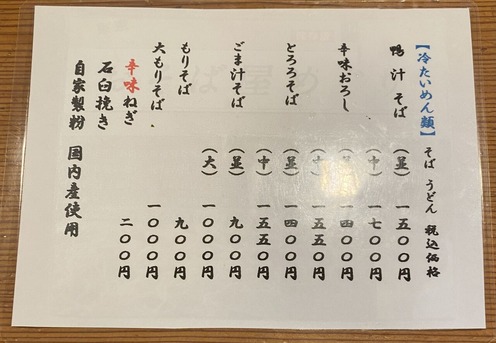 【冷たいめん類】 そば うどん 税込価格
鴨汁そば (並) 一五〇〇円
(中) 一七〇〇円
辛味おろし (並) 一四〇〇円
一五五〇円
とろろそば (並) 一四〇〇円
(中) 一五五〇円
ごま汁そば (並) 九〇〇円
(大) 一〇〇〇円
もりそば 九〇〇円
大もりそば 一〇〇〇円
辛味ねぎ 二〇〇円
石臼挽き
自家製粉 国内産使用